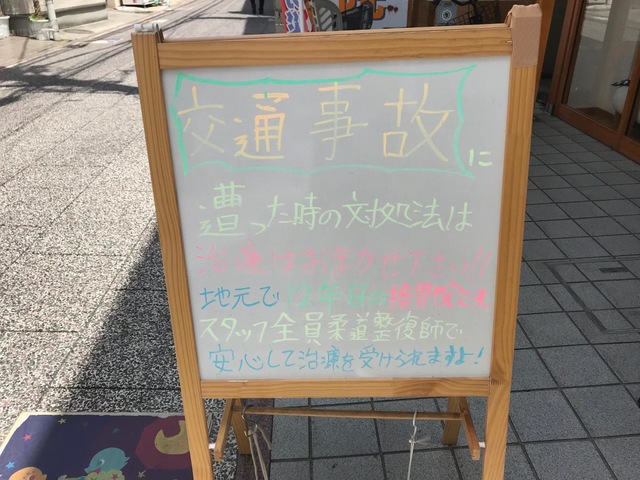 交通事故に
遭った時の対処法は
治療はおまかせ下さい!!
地元で12年目の接骨院です
スタッフ全員柔道整復師で
安心して治療を受けられますよ!